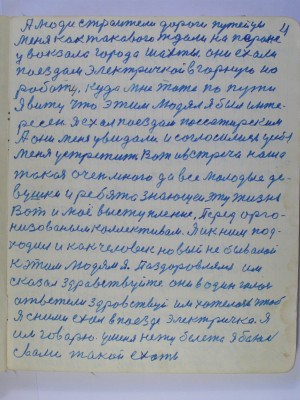 4
А люди строители дороги путейцы
меня как такавого ждали на пероне
у вокзала города Шахты. они ехали
поездам электричкой в горную на
работу. куда мне тоже по пути
Я вижу что этим людям я был инте-
ресен. Я ехал поездам пассажирским
А они меня увидали и согласились
меня устретить Вот и встреча наша
такая очен много да все молодые де-
вушки и ребята знающеи эту жизнь
Вот и моё выступление. Перед орга-
низованым коллективам. Я их ним под-
ходил и как человек новый не бывалой
к этим людям я. Поздоровлялся им
сказал здравствуйте они в один голос
ответили здравствуй им хотелось чтоб
Я сними ехал в поезде электричка. Я
им говарю. у меня нету билета я боюсь
свами такой ехать